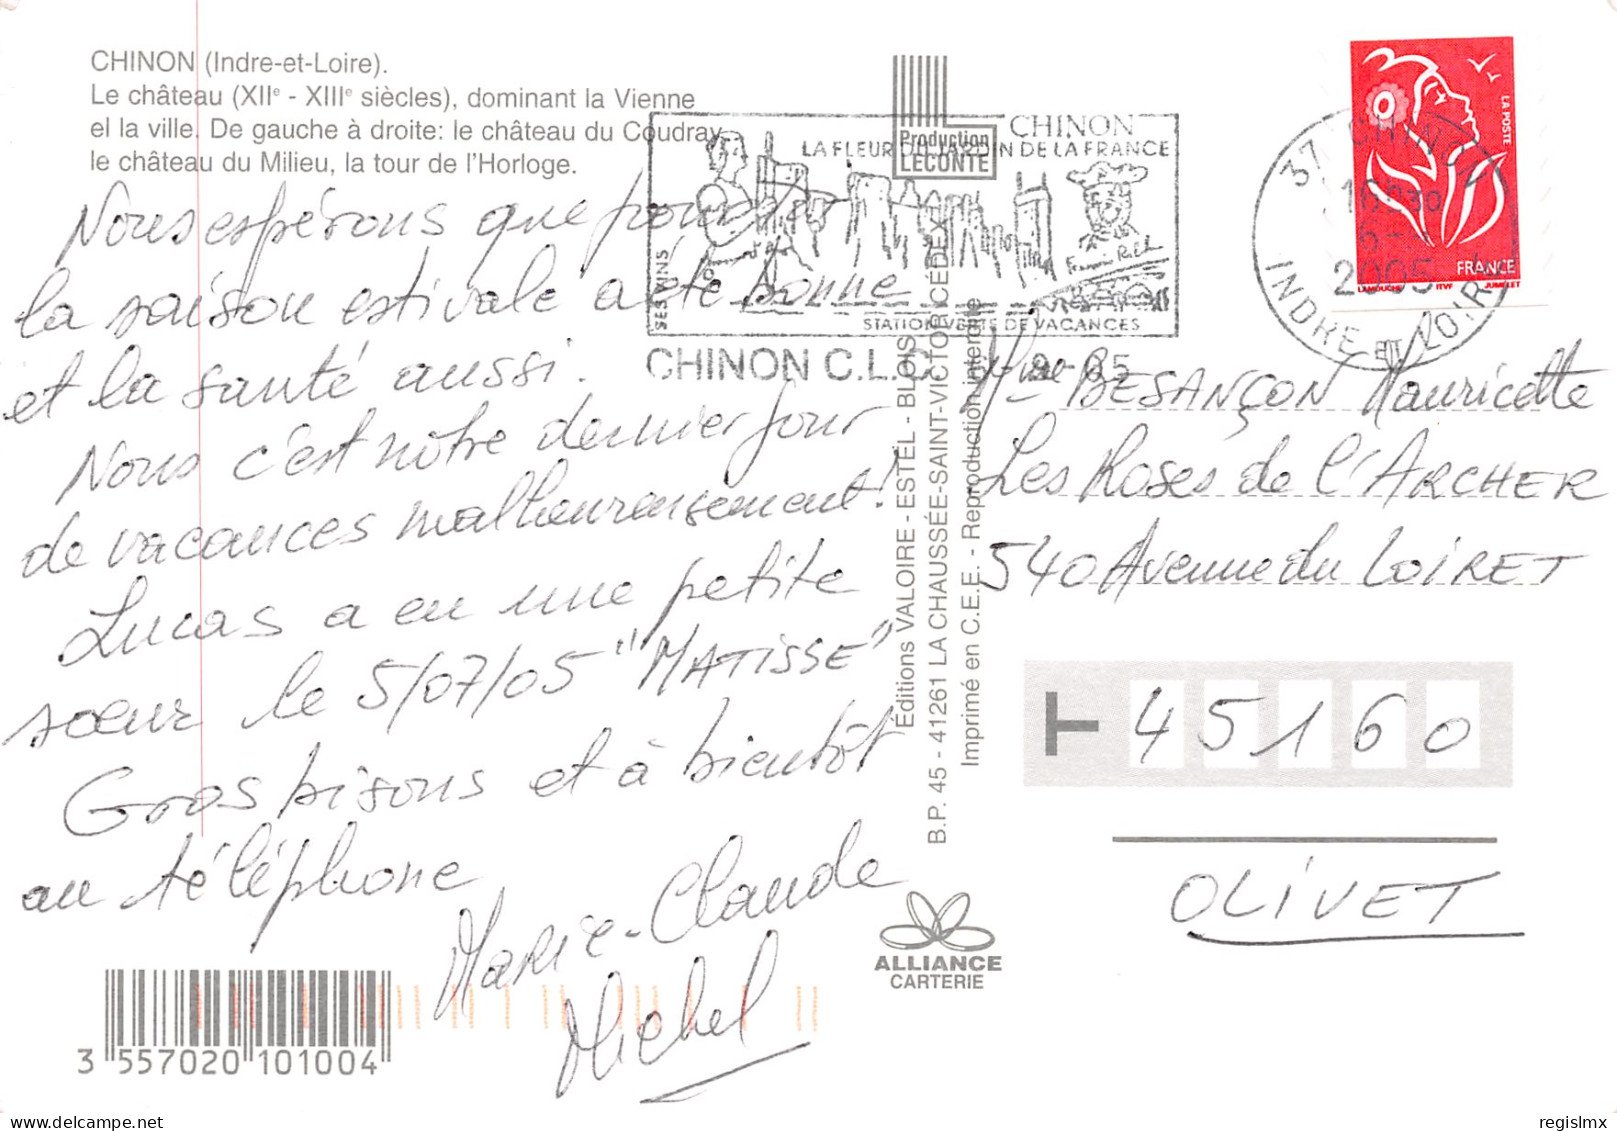 CHINON (Indre-et-Loire).
Le château (XIIe - XIIIe siècles), dominant la Vienne
el la ville. De gauche à droite: le château du Coudray,
le château du Milieu, la tour de l'Horloge.
Nous espérons que pour
la saison estivale a été bonne
et la santé aussi.
Nous c'est notre dernier jour
de vacances malheureusement !
Lucas a eu une petite
sœur le 5/07/05 "MATISSE"
Gros bisous et à bientôt
au téléphone
Marie-Claude
Michel
3 557020 101004
Production
LECONTE
CHINON
LA FLEUR DU JARDIN DE LA FRANCE
SES VINS
STATION VERTE DE VACANCES
CHINON C.L.C
Éditions VALOIRE - ESTEL - BLOIS
B.P. 45 - 41261 LA CHAUSSÉE-SAINT-VICTOR CEDEX
Imprimé en C.E.E. - Reproduction interdite
ALLIANCE
CARTERIE
LA POSTE
FRANCE
LAMOUCHE ITVF JUMELET
37 CHINON
16H30
2005
INDRE ET LOIRE
Mme BESANÇON Mauricette
Les Roses de l'ARCHER
540 Avenue du LOIRET
T 45160
OLIVET
regislmx